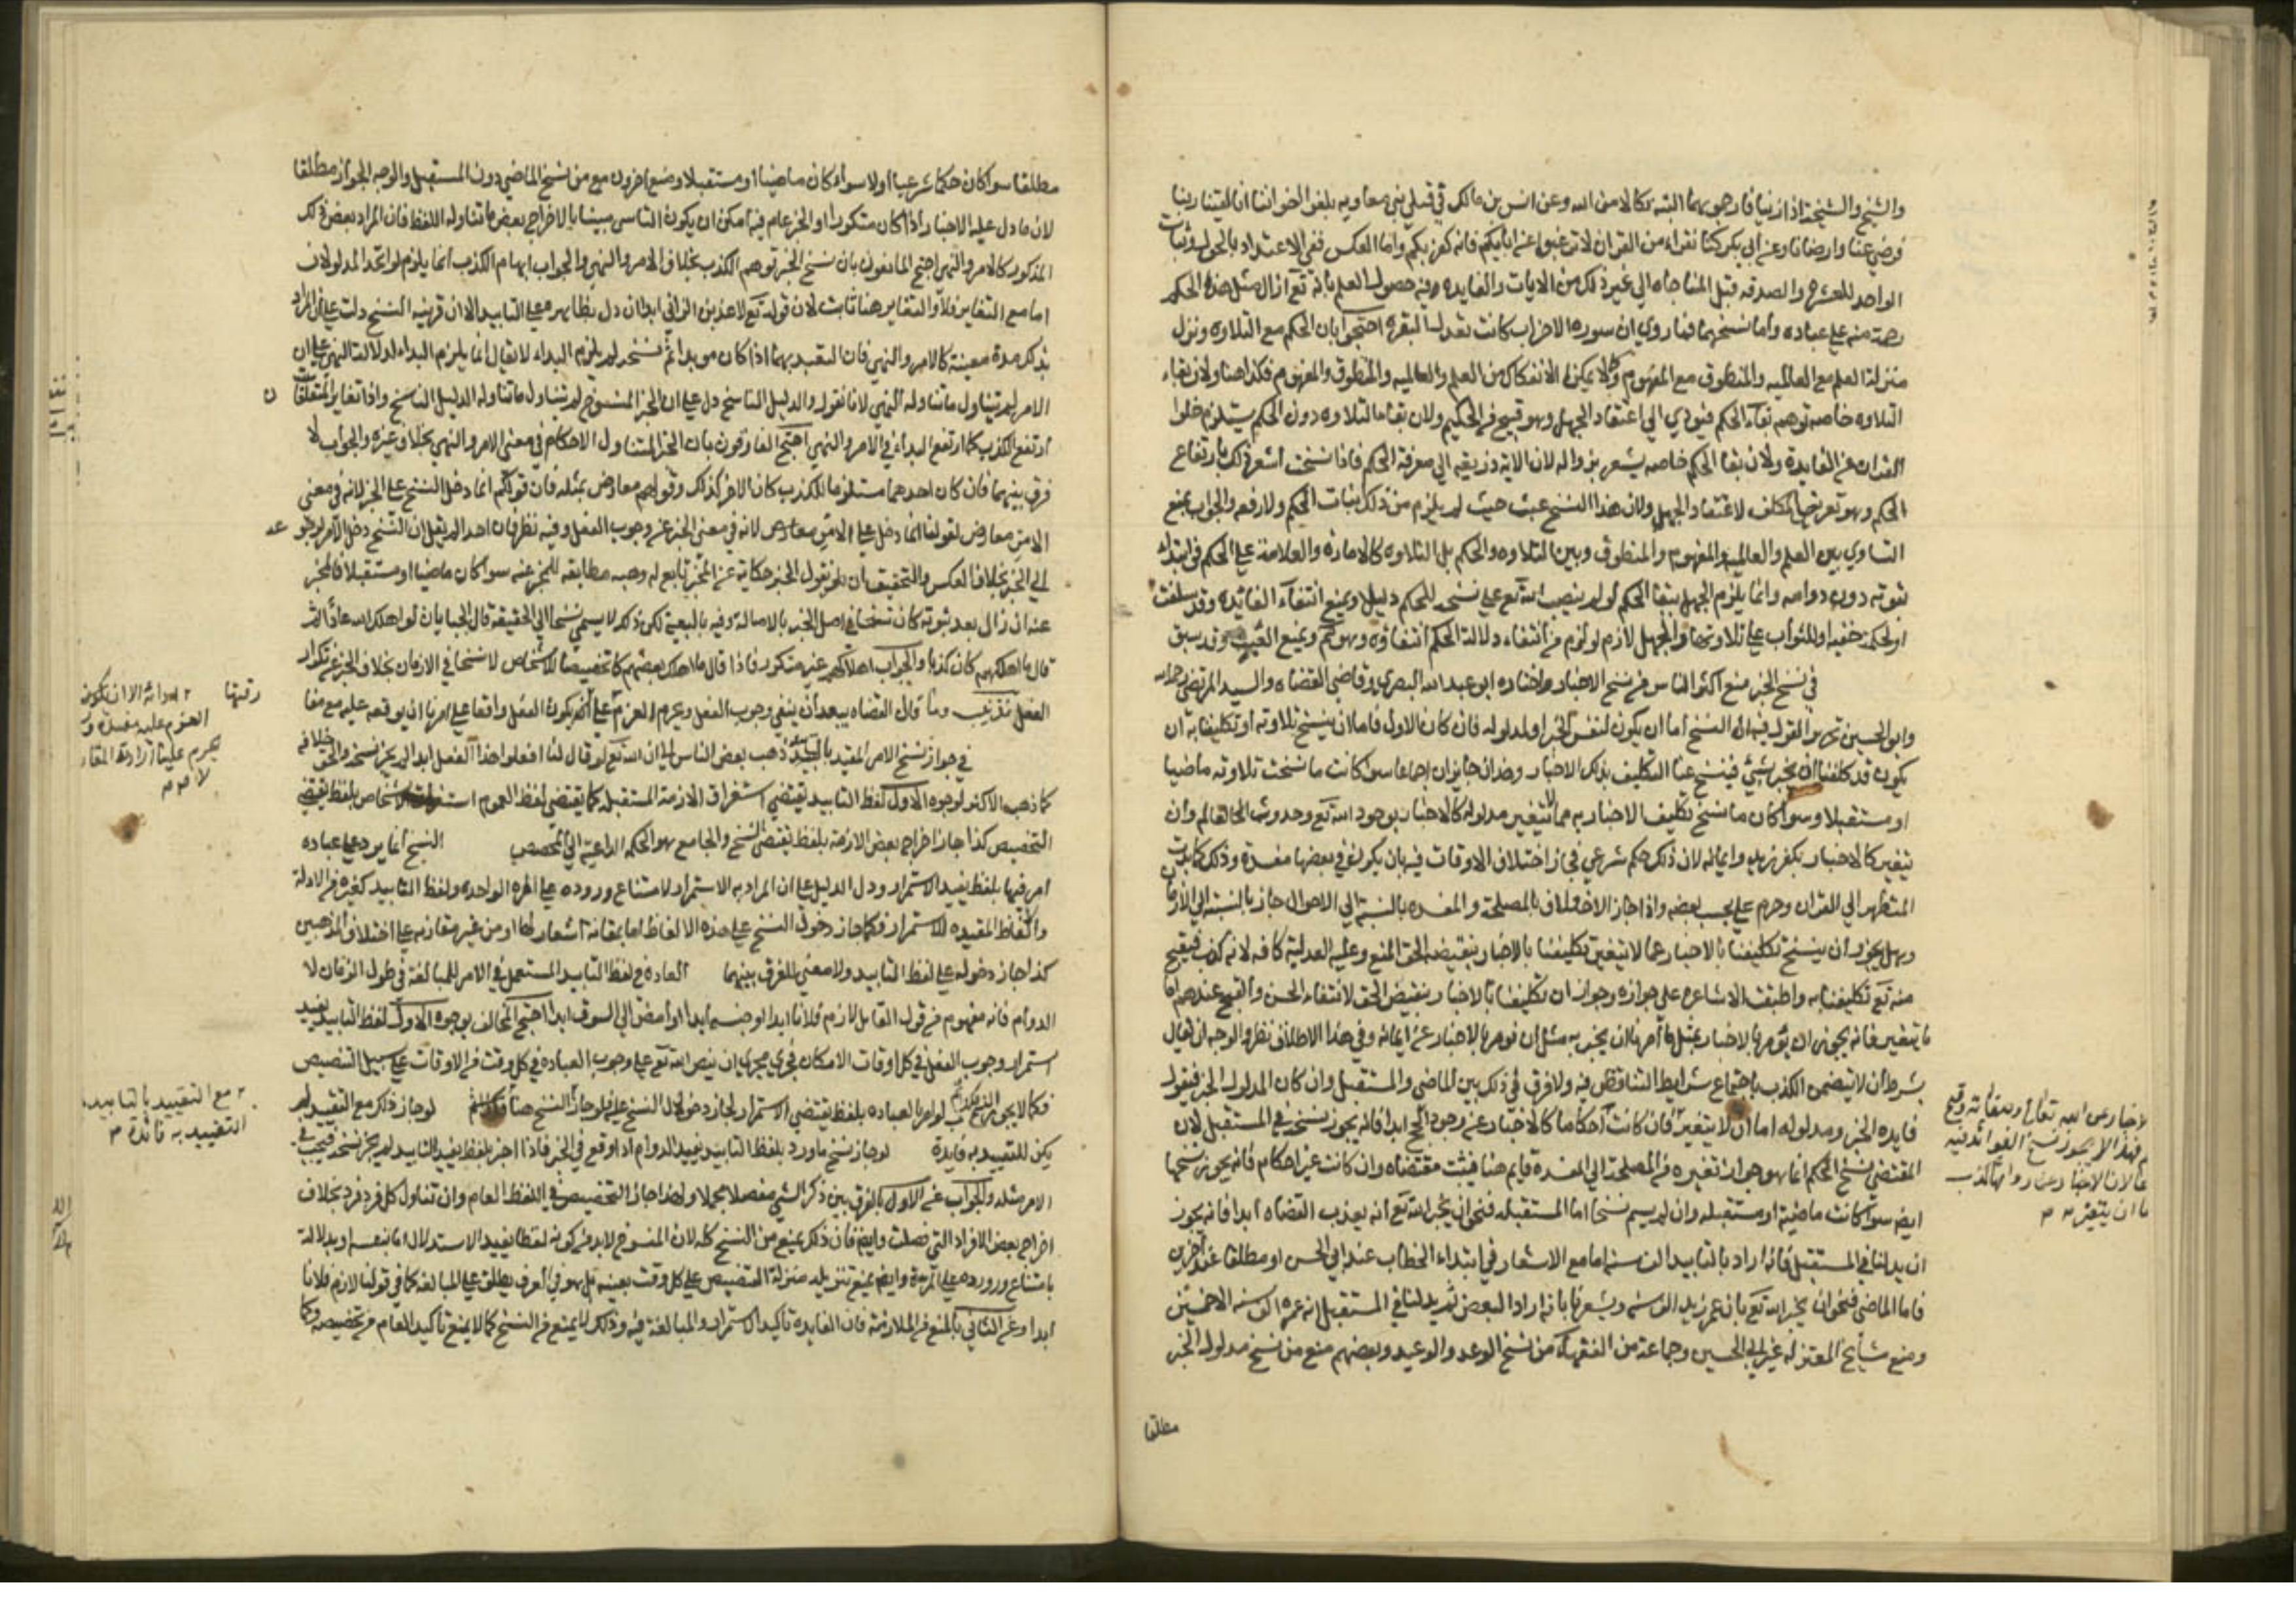 والشيخ والشيخة اذا زنيا فارجموهما البته نكالا من الله وعن انس بن مالك في قتلى بئر معاويه بلغوا اخواننا انا لقينا ربنا
فرضي عنا وارضانا وعن ابي بكر كنا نقراء من القران لا ترغبوا عن ابائكم فانه كفر بكم واما العكس ففي الاعتداد بالحول وثبات
الواحد للعشره والصدقه قبل المناجاه الي غير ذلك من الايات والفايده فيه حصول العلم بانه تع ازال مثل هذا الحكم
رحمة منه علي عباده واما نسخهما فما روي ان سورة الاحزاب كانت تعدل البقره احتجوا بان الحكم مع التلاوه ونزل
منزلة العلم مع العالميه والمنطوق مع المفهوم وكما لا يمكن الانفكاك من العلم والعالميه والمنطوق والمفهوم فكذا هنا ولان بقاء
التلاوه خاصه توهم بقاء الحكم فيؤدي الي اعتقاد الجهل وهو قبيح من الحكيم ولان بقاء التلاوه دون الحكم يستلزم خلوا
القران عن الفايدة ولان بقا الحكم خاصه يشعر بزواله لان الاية ذريعه الي معرفة الحكم فاذا نسخت اشعر ذلك بارتفاع
الحكم وهو تعريض المكلف لاعتقاد الجهل ولان هذا النسخ عبث حيث لم يلزم من ذلك اثبات الحكم ولا رفعه والجواب بمنع
التساوي بين العلم والعالميه والمفهوم والمنطوق وبين التلاوه والحكم بل التلاوه كالامارة والعلامة علي الحكم في ابتداء
ثبوته دون دوامه وانما يلزم الجهل ببقا الحكم لو لم ينصب الله تع علي نسخه للحكم دليلا ويمنع انتفاء الفائده وقد سلفت
او لحكمة خفيه او للثواب علي تلاوتها والجهل لازم لو لزم من انتفاء دلالة الحكم انتفاؤه وهو ثم ويمنع العبث وقد سبق
في نسخ الخبر منع اكثر الناس من نسخ الاخبار واختاره ابو عبد الله البصري وقاضي القضاه والسيد المرتضي
وابو الحسين تحرير القول فيه ان النسخ اما ان يكون لنفس الخبر او لمدلوله فان كان الاول فاما ان ينسخ تلاوته او تكليفنا به ان
يكون قد كلفنا ان نخبر بشي فينسخ عنا التكليف بذلك الاخبار وهذان جايزان اجماعا سوا كانت ما نسخت تلاوته ماضيا
او مستقبلا وسوا كان ما نسخ تكليف الاخبار به مما لا يتغير مدلوله كالاخبار بوجود الله تع وحدوث العالم وان
يتغير كالاخبار بكفر زيد وايمانه لان ذلك حكم شرعي فجاز اختلاف الاوقات فيه بان يكون في بعضها مفسدة وذلك
المتطهر الي القران وحرم علي الجنب بعضه واذا جاز الاختلاف بالمصلحة والمفسده بالنسبة الي الاحوال جاز بالنسبة الي الازمان
وهل يجوز ان ينسخ تكليفنا بالاخبار عما لا يتغير تكليفنا بالاخبار بنقيضه الحق المنع وعليه العدلية كافه لانه كذب فيقبح
منه تع تكليفنا به واطبقت الاشاعره علي جوازه وجواز ان تكليفنا بالاخبار بنقيض الحق لانتفاء الحسن والقبح عندهم اما
ما يتغير فانه يجوز ان يؤمر بالاخبار بمثل ما امرنا ان نخبر به مثل ان نؤمر بالاخبار عن ايمانه وفي هذا الاطلاق نظر والوجه ان يقال
بشرط ان لا يتضمن الكذب باجتماع شرايط التناقض فيه ولا فرق في ذلك بين الماضي والمستقبل وان كان المدلول الخبر فيقول
فايده الخبر ومدلوله اما ان لا يتغير فان كانت احكاما كالاخبار عن وجوب الحج ابدا فانه يجوز نسخه في المستقبل لان
المقتضي لنسخ الحكم انما هو جواز تغيره من المصلحة الي المفسدة قايم هنا فيثبت مقتضاه وان كانت غير احكام فانه يجوز نسخها
ايضا سوا كانت ماضية او مستقبله وان لم يسم نسخا اما المستقبله فنحو ان يخبر الله تع انه يعذب العصاه ابدا فانه يجوز
ان يدلنا في المستقبل فانه اراد بالتابيد الف سنه اما مع الاشعار في ابتداء الخطاب عند ابي الحسين او مطلقا عند اخرين
فاما الماضي فنحو ان يخبر الله تع بان عمر زيدا الف سنه ويشعرنا بانه اراد البعض ثم يدلنا في المستقبل انه عمره الف سنه الا خمسين
ومنع مشايخ المعتزله غير ابي الحسين وجماعة من الفقهاء من نسخ الوعد والوعيد وبعضهم منع من نسخ مدلول الخبر
مطلقا
مطلقا سوا كان حكما شرعيا اولا سواء كان ماضيا او مستقبلا ومنع اخرون مع من نسخ الماضي دون المستقبل والوجه الجواز مطلقا
لان ما دل عليه الاخبار اذا كان متكررا او الخبر عام فيه امكن ان يكون الناسخ مبينا بالاخراج بعض ما تناوله اللفظ فان المراد بعض ذلك
المذكور كالامر والنهي احتج المانعون بان نسخ الخبر توهم الكذب بخلاف الامر والنهي والجواب ايهام الكذب انما يلزم لو اتحد المدلولان
اما مع التغاير فلا والتغاير هنا ثابت لان قوله تع لاعذبن الزاني ابدا ان دل بظاهره علي التابيد الا ان قرينه النسخ دلت علي ان المراد
بذلك مدة معينة كالامر والنهي فان التقييد بهما اذا كان موبدا ثم نسخ لم يلزم البداء لا يقال انما يلزم البداء لو دلالة النهي علي ان
الامر لم يتناول ما تناوله النهي لانا نقول والدليل الناسخ دل علي ان الخبر المنسوخ لم يتناول ما تناوله الدليل الناسخ واذا تغاير المتعلقان
ارتفع الكذب كما ارتفع البداء في الامر والنهي احتج الفارقون بان الخبر المتناول الاحكام في معنى الامر والنهي بخلاف غيره والجواب لا
فرق بينهما فان كان احدهما مستلزما للكذب كان الاخر كذلك وقولهم معارض بمثله فان قولكم انما دخل النسخ علي الخبر لانه في معنى
الامر معارض لقولنا انما دخل علي الامر لانه في معنى الخبر عن وجوب الفعل وفيه نظر فان احدا لم يقل ان النسخ دخل الامر لرجوعه
الي الخبر بخلاف العكس والتحقيق ان نقول الخبر حكاية عن المخبر تابع له وجبه مطابقه للمخبر عنه سوا كان ماضيا او مستقبلا فالمخبر
عنه ان زال بعد ثبوته كان نسخا في اصل الخبر بالاصالة وفيه بالتبعية لكن ذلك لا يسمي نسخا في الحقيقة قال الجبايان لو اهلك الله عادا ثم
قال ما اهلكهم كان كذبا والجواب اهلاكهم غير متكرر فاذا قال ما اهلك بعضهم كان تخصيصا للاشخاص لا نسخا في الازمان بخلاف الخبر عن تكرار
الفعل تذنيب وما قال القضاه يبعد ان ينفي وجوب الفعل ويحرم العزم علي
في جواز نسخ الامر المقيد بالتابيد ذهب بعض الناس الي ان الله تع لو قال لنا افعلوا هذا الفعل ابدا لم يجز نسخه والحق خلافه
كما ذهب الاكثر لوجوه الاول لفظ التابيد يقتضي استغراق الازمنة المستقبله كما يقتضي لفظ العموم استغراق الاشخاص بلفظ يقتضي
التخصيص كذا جاز اخراج بعض الازمنة بلفظ يقتضي النسخ والجامع هو الحكمة الداعية الي التخصيص النسخ انما يرد علي عباده
امر فيها بلفظ يفيد الاستمرار ودل الدليل علي ان المراد به الاستمرار لامتناع وروده علي المره الواحده ولفظ التابيد كغيره من الادلة
والالفاظ المفيده للاستمرار فكما جاز دخول النسخ علي هذه الالفاظ اما بمقارنة اشعار لها او من غير مقارنه علي اختلاف المذهبين
كذا جاز دخوله علي لفظ التابيد ولا معنى للفرق بينهما العادة في لفظ التابيد المستعمل في الامر للمبالغة في طول الزمان لا
الدوام فانه مفهوم من قول القايل لازم فلانا ابدا او احبسه ابدا او امض الي السوق ابدا احتج المخالف بوجوه الاول لفظ التابيد يفيد
استمرار وجوب الفعل في كل اوقات الامكان فجري مجري ان ينص الله تع علي وجوب العباده في كل وقت من الاوقات علي سبيل التنصيص
فكما لا يجوز النسخ لو امر بالعباده بلفظ يقتضي الاستمرار لجاز دخول النسخ عليه فلو جاز النسخ هنا لو جاز ذلك مع التقييد لم
يكن للتقييد به فايدة لو جاز نسخ ما ورد بلفظ التابيد يفيد الدوام اذا وقع في الخبر فاذا اخبر بلفظ يفيد التابيد لم يجز نسخه فيجب في
الامر مثله والجواب عن الاول بالفرق بين ذكر الشي مفصلا ومجملا ولهذا جاز التخصيص في اللفظ العام وان تناول كل فرد فرد بخلاف
اخراج بعض الافراد التي فصلت وايضا فان ذلك يمنع من النسخ كله لان المنسوخ لابد من كونه لفظا يفيد الاستمرار اما بنفسه او بدلالة
بامتناع وروده علي المرة وايضا يمنع تنزيله منزلة التنصيص علي كل وقت بعينه بل هو في العرف يطلق علي المبالغه كما في قولنا لازم فلانا
ابدا وعن الثاني بالمنع من الملازمة فان الفايده تاكيد الاستمرار والمبالغة فيه وذلك لا يمنع من النسخ كما لا يمنع تاكيد العام من تخصيصه وكما
مع التقييد بالتابيد
التقييد به فائدة